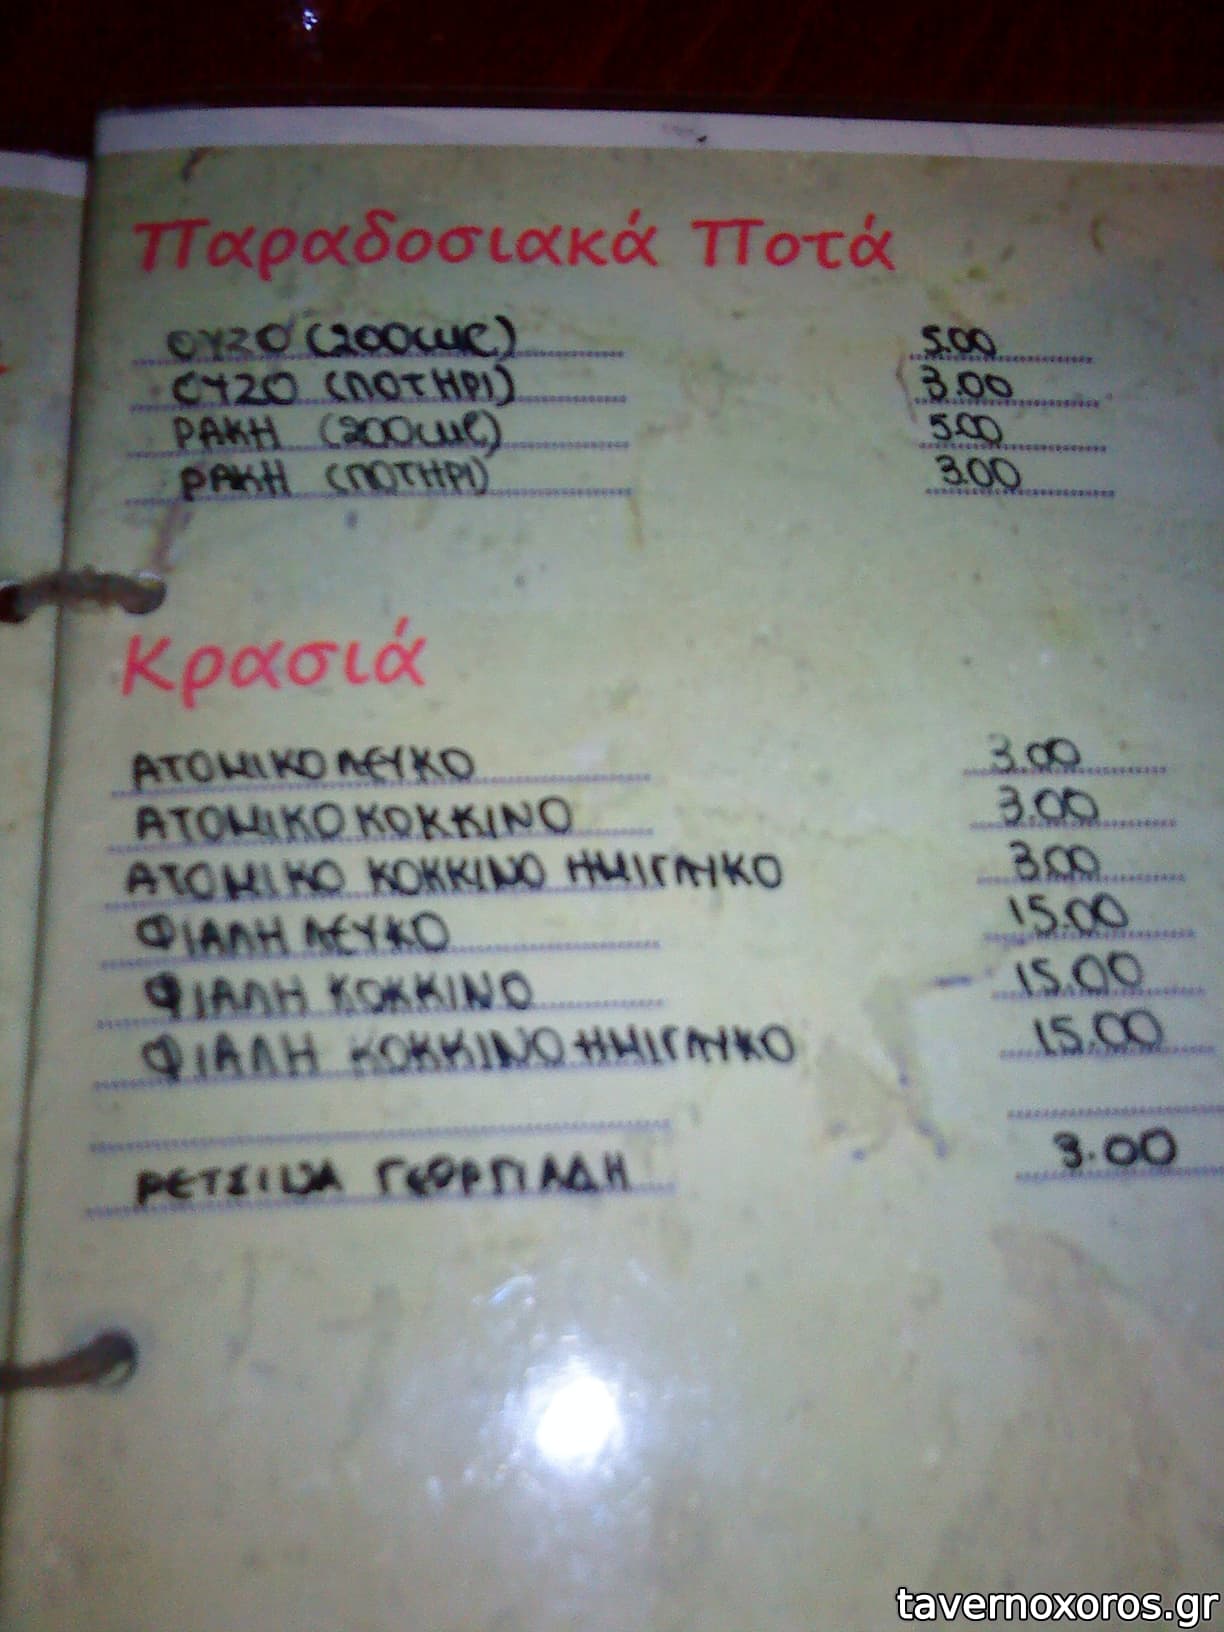 Παραδοσιακά Ποτά
ΟΥΖΟ (200ωμε) 5.00
ΟΥΖΟ (ΠΟΤΗΡΙ) 3.00
ΡΑΚΗ (200ωμε) 5.00
ΡΑΚΗ (ΠΟΤΗΡΙ) 3.00
Κρασιά
ΑΤΟΜΙΚΟ ΛΕΥΚΟ 3.00
ΑΤΟΜΙΚΟ ΚΟΚΚΙΝΟ 3.00
ΑΤΟΜΙΚΟ ΚΟΚΚΙΝΟ ΗΜΙΓΛΥΚΟ 3.00
ΦΙΑΛΗ ΛΕΥΚΟ 15.00
ΦΙΑΛΗ ΚΟΚΚΙΝΟ 15.00
ΦΙΑΛΗ ΚΟΚΚΙΝΟ ΗΜΙΓΛΥΚΟ 15.00
ΡΕΤΣΙΝΑ ΓΕΩΡΓΙΑΔΗ 3.00
tavernoxoros.gr